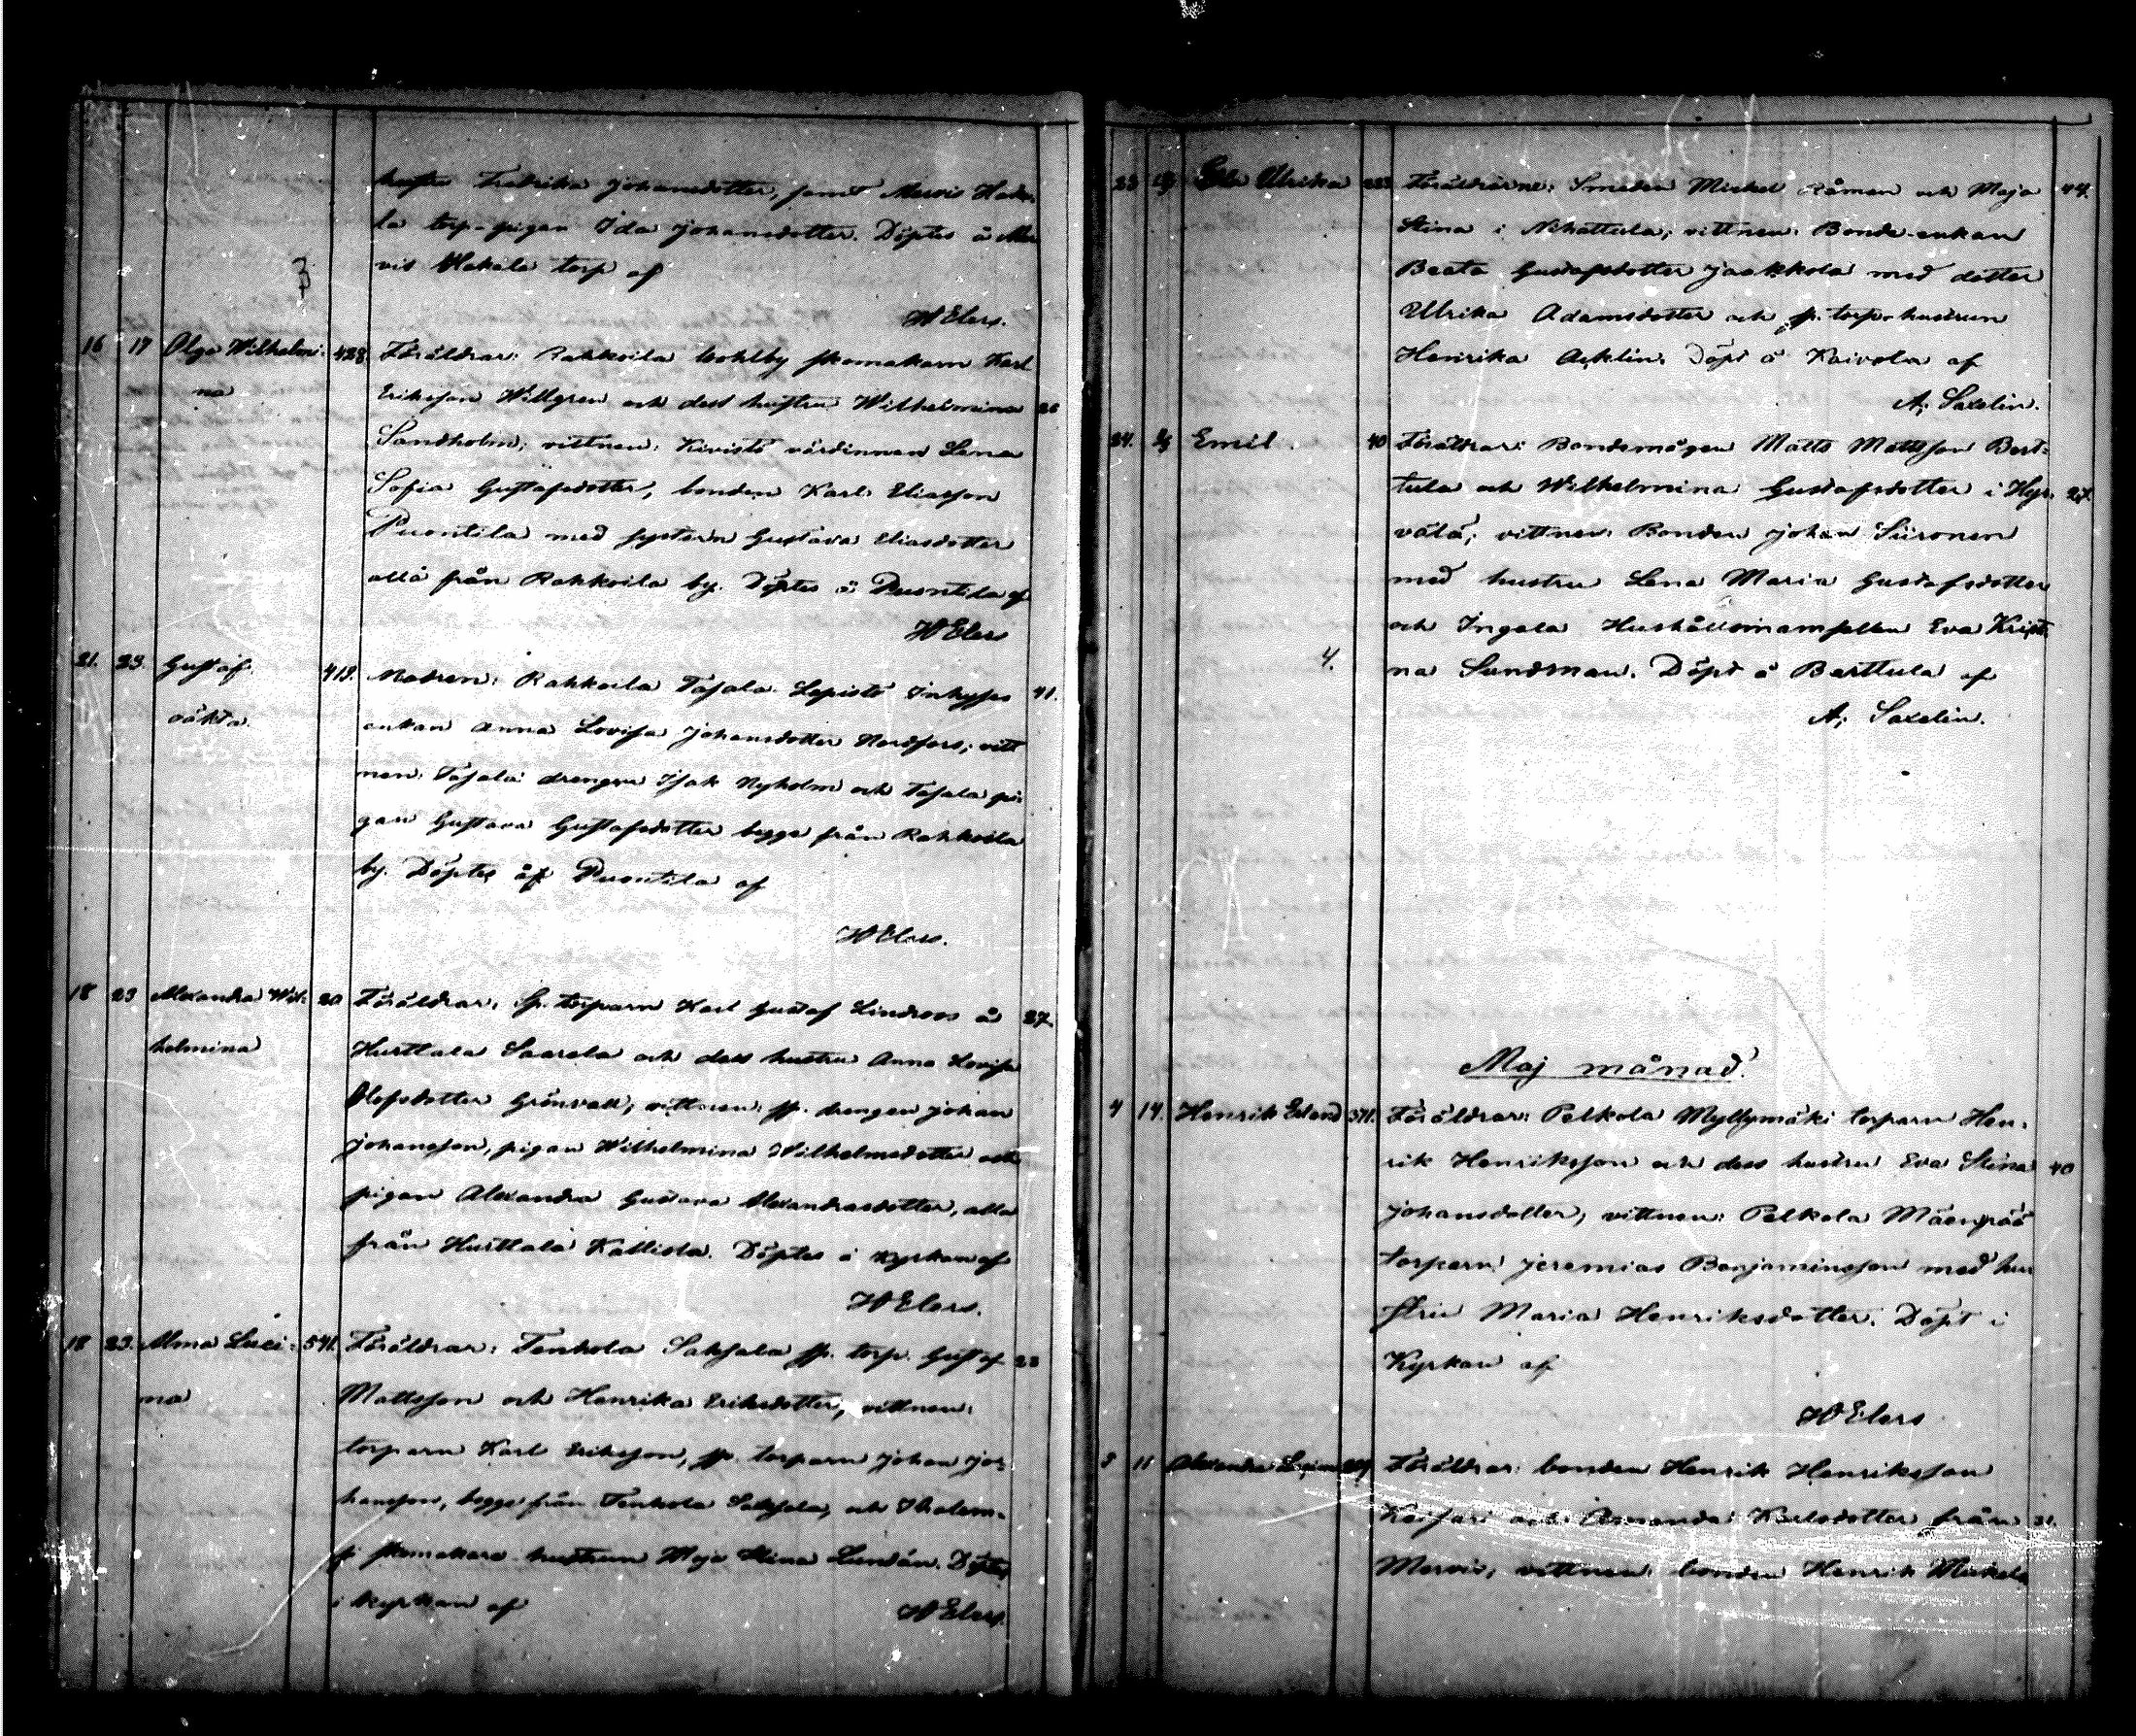 hustru Fredrika Johansdotter, samt Mervis Hake-
la torp-pigan Ida Johansdotter. Döptes å Mer
vis Hakala torp af
3
W Elers.
16 17 Olga Wilhelmi- 428. Föräldrar: Rahkoila bohlby skomakarn Karl
na Eriksson Willgren och dess hustru Wilhelmina 26
Sandholm; vittnen: Kivistö värdinnan Lena
Sofia Gustafsdotter, bonden Karl Eliasson
Puontila med systern Gustava Eliasdotter
alla från Rahkoila by. Döptes å Puontila af
W Elers
21. 23. Gustaf. 413. Modren: Rahkoila Tasala Lepistö Inhyses 41.
oäkta. enkan Anna Lovisa Johansdotter Nordfors; vitt
nen: Tasala drengen Isak Nyholm och Tasala pi-
gan Gustava Gustafsdotter begge från Rahkoila
by. Döptes å Puontila af
W Elers.
18 23 Alexandra Wil- 20 Föräldrar: Sp. torparn Karl Gustaf Lindroos å 27.
helmina Hurttala Saarela och dess hustru Anna Lovisa
Olofsdotter Grönvall; vittnen: sp. drengen Johan
Johansson, pigan Wilhelmina Wilhelmsdotter och
pigan Alexandra Gustava Alexandrasdotter, alla
från Hurttala Kallista. Döptes i kyrkan af
W Elers.
18 23. Alma Lusi- 541. Föräldrar: Tenhola Saksala sp. torp. Gustaf 23
na Mattsson och Henrika Eriksdotter, vittnen:
torparn Karl Eriksson, sp. torparn Johan Jo-
hansson, begge från Tenhola Saksala, och
skomakare hustrun Maja Stina Lundén. Döptes
i kyrkan af W Elers.
23 Ulrika 223 Föräldrarne: Smeden Mickel Råman och Maja 44.
Stina i Nihattula; vittnen: Bonde-enkan
Beata Gustafsdotter Jaakkola med dotter
Ulrika Adamsdotter och sp. torp-hustrun
Henrika Asklin. Döpt å Kaivola af
A; Saxelin.
24. Emil. 40 Föräldrar: Bondemågen Matts Mattsson Bert-
tula och Wilhelmina Gustafsdotter i Hyr- 27.
välä; vittnen: Bonden Johan Siironen
med hustru Lena Maria Gustafsdotter
och Ingala Hushållsmamsellen Eva Kristi
4. na Sandman. Döpt å Berttula af
A; Saxelin.
Maj månad.
4 14. Henrik Erland 371. Föräldrar: Pelkola Myllymäki torparn Hen-
rik Henriksson och dess hustru Eva Stina 40
Johansdotter, vittnen: Pelkola Mäenpää
torparn Jeremias Benjaminsson med hu
stru Maria Henriksdotter. Döpt i
Kyrkan af
W Elers
3 11 Alexandra Föräldrar: bonden Henrik Henriksson
och Amanda Karlsdotter från 21.
Mervis; vittnen: bonden Henrik Mickels